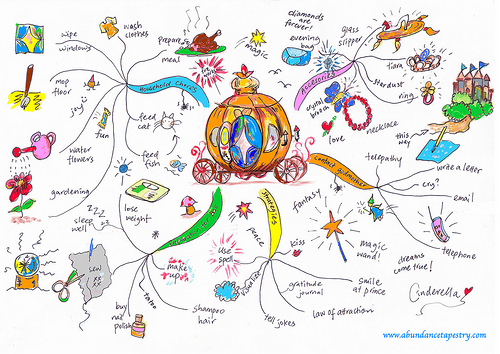 wipe
windows
wash
clothes
prepare
meal
mop
floor
Household Chores
joy
fun
feed
cat
water
flowers
feed
fish
gardening
magic
diamonds
are
forever!
evening
bag
glass
slipper
Accessories
tiara
stardust
ring
crystal
brooch
necklace
love
this
way
Contact godmother
telepathy
write a letter
email
telephone
fantasy
magic
wand!
dreams
come true!
Cinderella
smile
at prince
law of attraction
gratitude
journal
tell jokes
kiss
peace
use
spell
lose
weight
zzz
sleep
well
sew
xx
xx
make
up
buy
nail
polish
tattoo
shampoo
hair
www.abundancetapestry.com